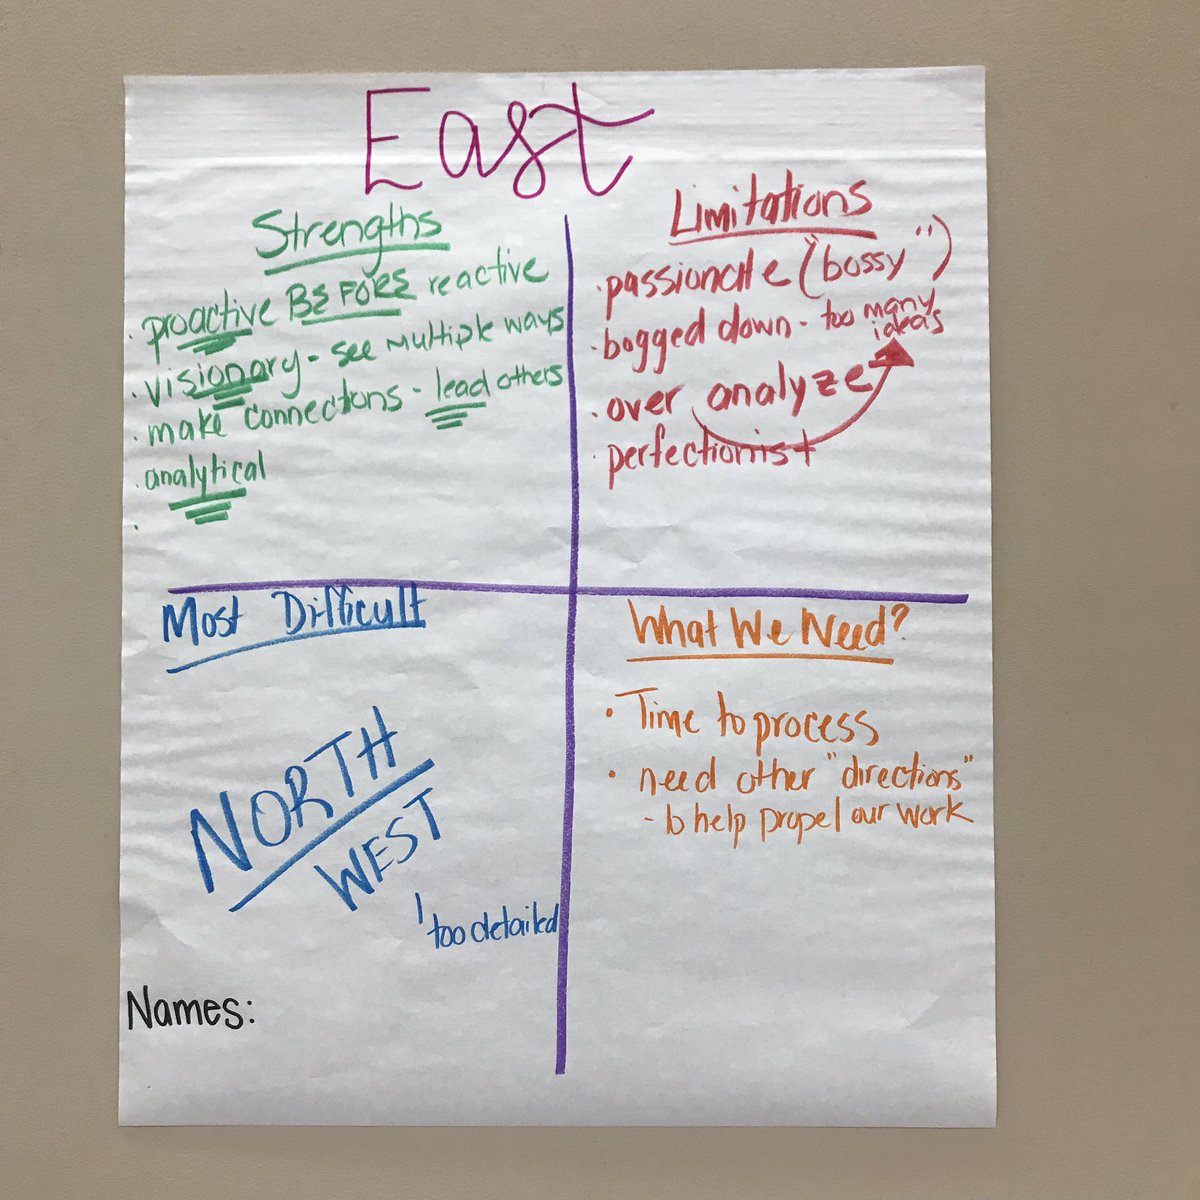 East
Strengths
· proactive BEFORE reactive
· visionary - see multiple ways
· make connections - lead others
· analytical
·
Limitations
· passionate ("bossy")
· bogged down - too many
ideas
· over analyze
· perfectionist
Most Difficult
NORTH
WEST
too detailed
Names:
What We Need?
· Time to process
· need other "directions"
- to help propel our work